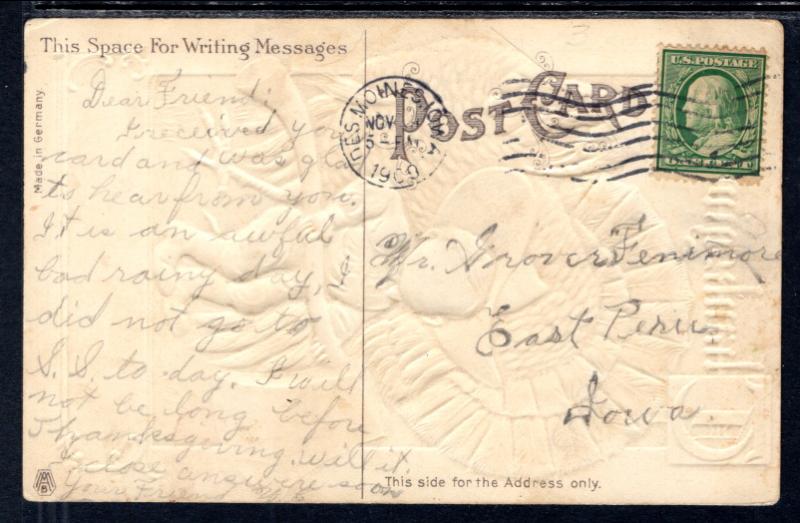 This Space For Writing Messages
Dear Friend;
I received your
card and was glad
to hear from you.
It is an awful
bad rainy day,
did not go to
S. S. to-day. I will
not be long before
Thanksgiving will it.
close answere soon
Your Friend
Made in Germany.
POST CARD
DES MOINES, IOWA
NOV
1909
U.S. POSTAGE
Mr. Grover Fenimore
East Peru
Iowa.
This side for the Address only.